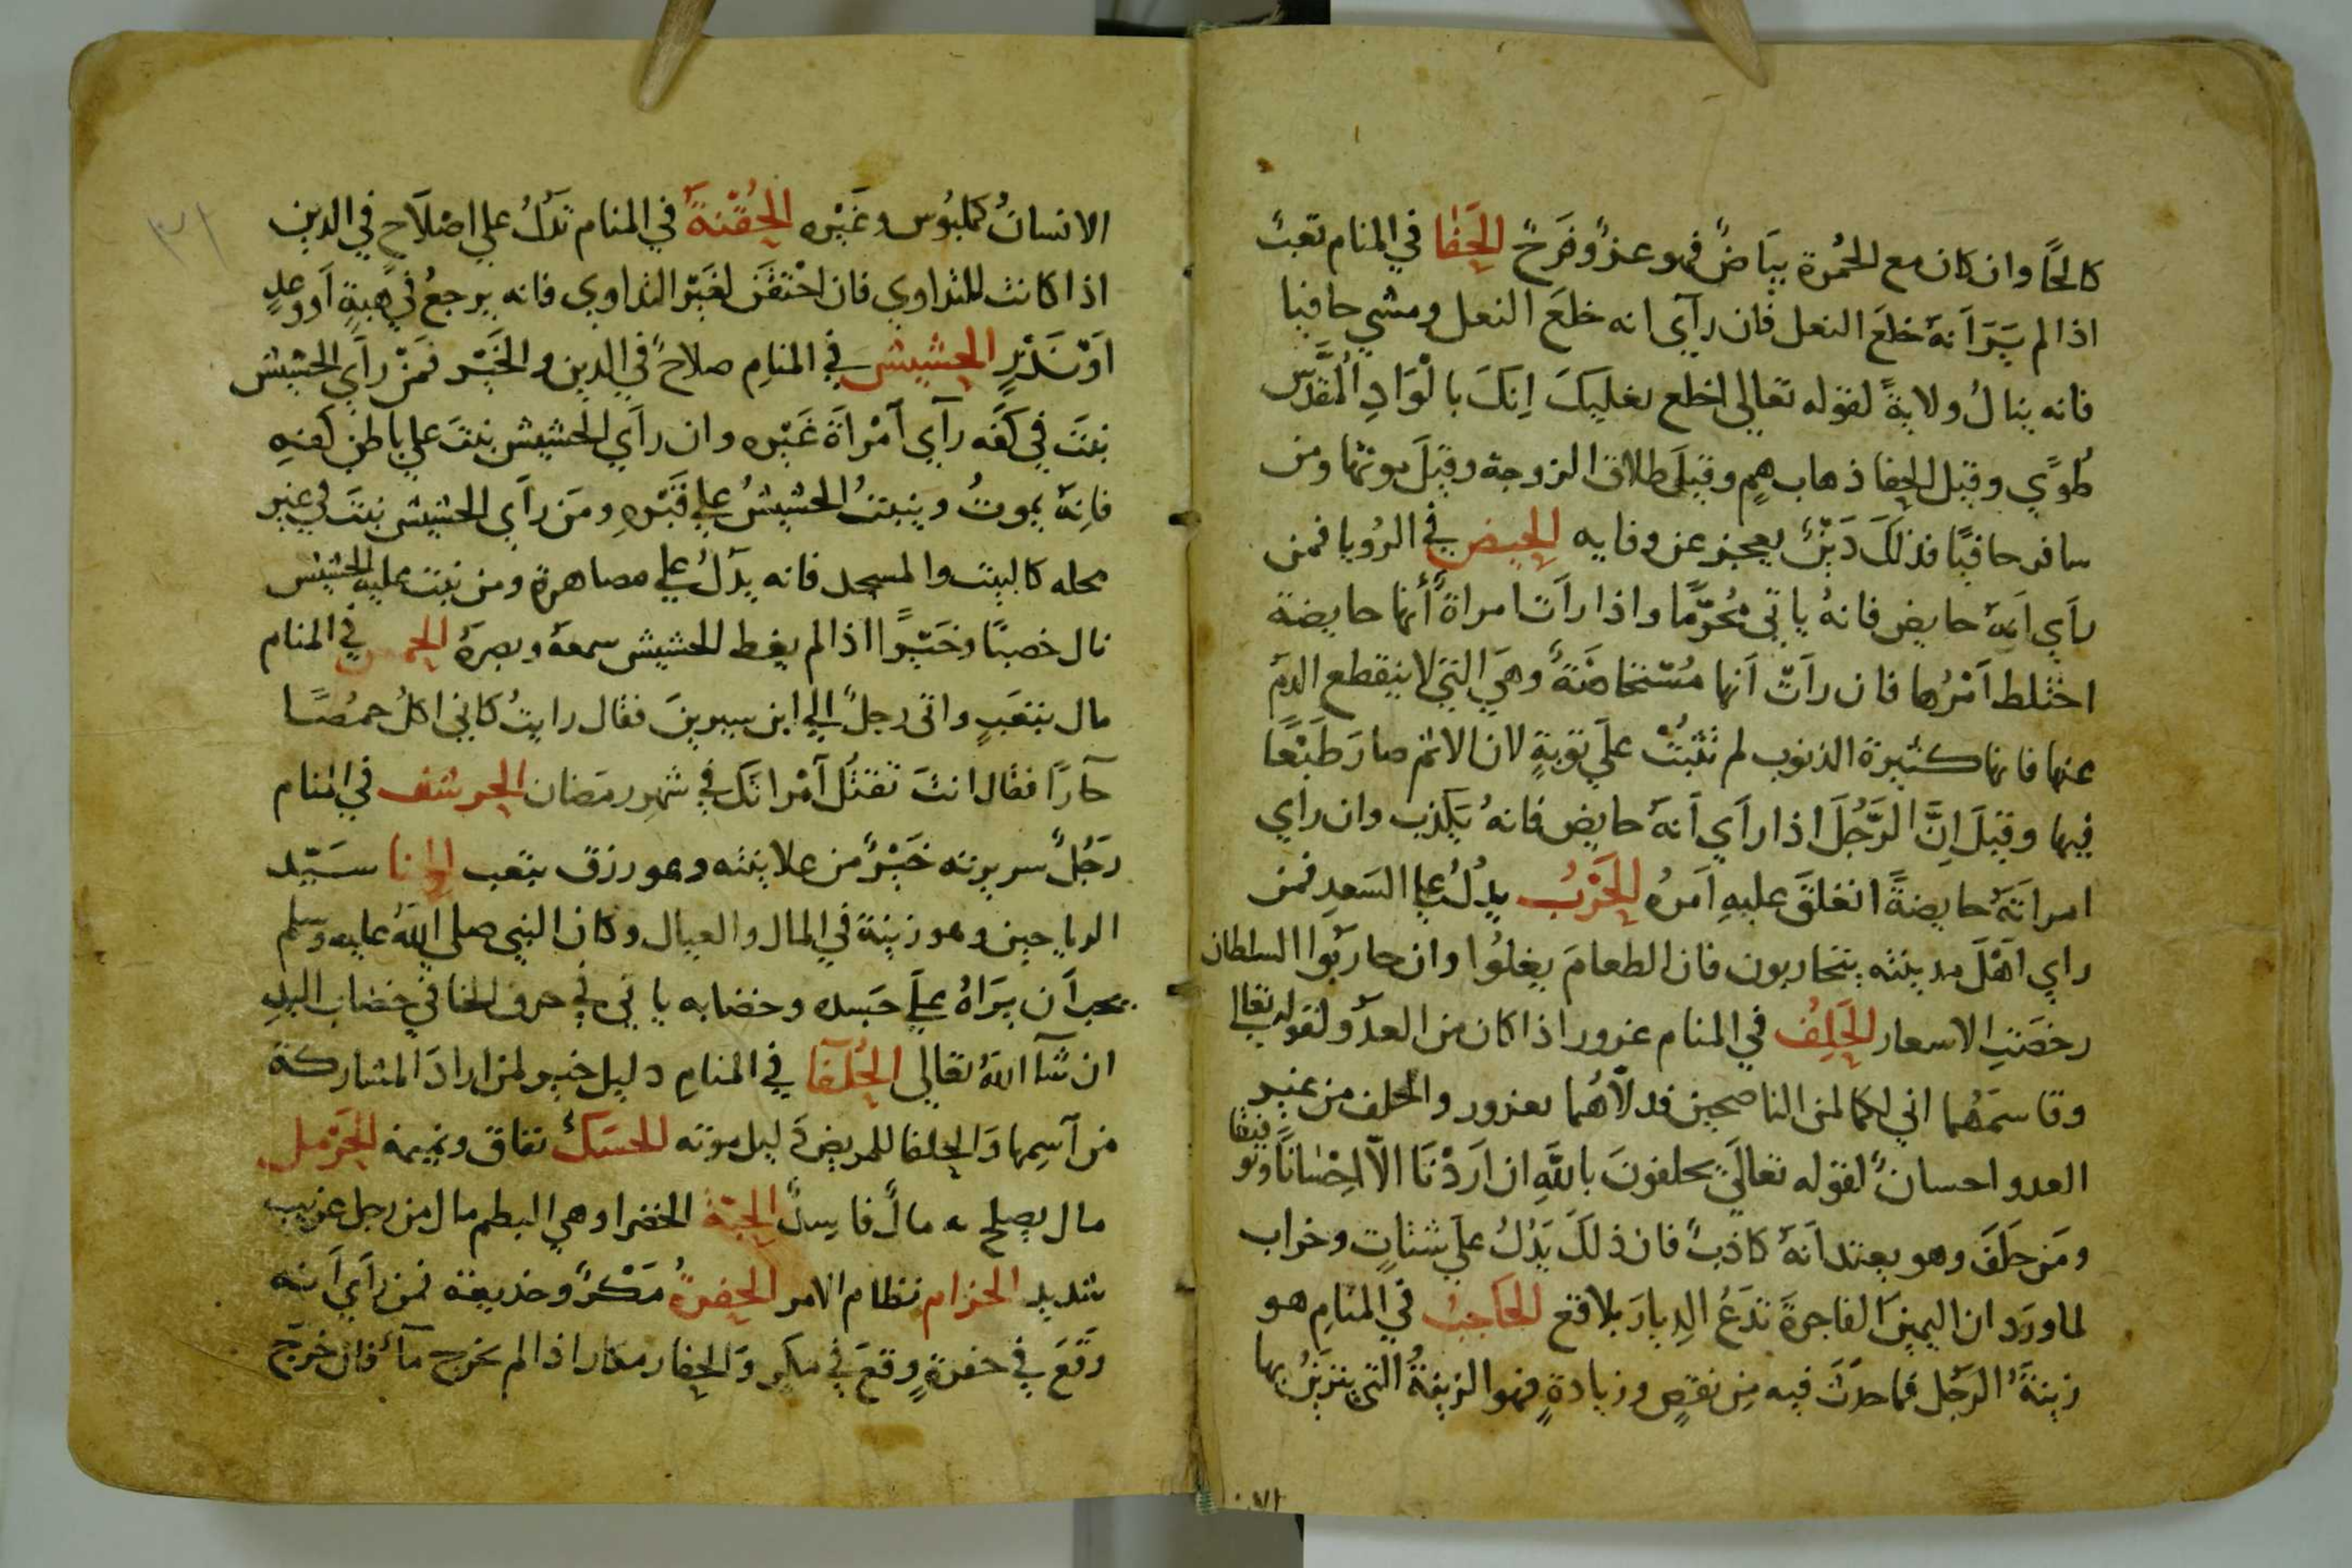 كالحًا وان كان مع الحُمرة بيَاضٌ فهو عزٌ وفَرحٌ الحَفا في المنام تعبٌ
اذا لم يَرَ اَنهُ خلعَ النعل فان رآي انه خلعَ النعل ومشي حافيا
فانه ينالُ ولايةً لقوله تعالي اخلع نعليكَ اِنكَ بالْوَادِ المُقدَّس
طُوًي وقيل الحفا ذهاب همٍ وقيلَ طلاق الزوجة وقيلَ موتها ومن
سافر حافيًا فذلكَ دَيْنٌ يعجز عن وفايه الحيض في الرُويا فمن
رآي اَنهُ حايض فانهُ ياتي مُحرّمًا واذا راَت امراةٌ أنها حايضة
اختلط اَمْرُها فان راَتْ اَنها مُسْتحاضَةٌ وهيَ التي لا ينقطع الدمُ
عنها فانها كثيرة الذنوب لم تثبُتْ علَي توبةٍ لان الاثم صارَ طَبْعًا
فيها وقيلَ اِنَّ الرَّجُلَ اذا رآَي اَنهُ حايض فانهُ يَكذب وان راي
امراتَهُ حايضةً انغلقَ عليهِ اَمرُه الحَرْبُ يدُلُ علي السَعدِ فمن
راي اَهْلَ مدينته يتحاربون فان الطعامَ يغلُوا وان حاربُوا السلطان
رخصَتِ الاسعار الحَلِفُ في المنام غرور اذا كان من العدُوّ لقوله تعالي
وقاسمَهُما اني لكما لمن الناصحين فدلاَّهُما بغرور والحلف من غير
العدو احسانٌ لقوله تعاليَ يحلفونَ باللهِ ان اَرَدْنَا الاّ اِحْسَانًا وتوفيقا
ومَن حلَفَ وهو يعتد اَنهُ كاذبٌ فان ذلكَ يَدُلُ علَي شتاتٍ وخراب
لما ورَد ان اليمينَ الفاجرةَ تدَعُ الدِيارَ بلاقع الحَاجبُ في المنامِ هو
زينةُ الرجُل فما حدَثَ فيه مِن نقصٍ وزيادةٍ فهو الزينةُ التي يتزيَنُ بها
الانسانُ كملبُوس وغَيْره الحُقْنةُ في المنام تَدُلُ علي اصْلاَحٍ في الدين
اذا كانت للتداوي فان احْتقَنَ لغَيْر التداوي فانه يرجعُ في هِبةٍ اَو وعدٍ
اَوْ نَذْرٍ الحشيش في المنامِ صلاحٌ في الدين والخَيْر فمَنْ رآَي الحشيش
نبتَ في كَفّه رآي اَمْراَةَ غَيْره وان رآَي الحشيش نبتَ علي باطن كفهِ
فاِنهُ يموتُ وينبتُ الحشيشُ علي قَبْرِهِ ومَن رآَي الحشيش نبتَ في غير
محله كالبيت والمسجد فانه يدَلُ علي مصاهرة ومن نبت عليه الحشيش
نال خصبًا وخَيْرًا اذا لم يغط الحشيش سمعهُ وبصرَهُ الحمص في المنام
مال بتعَبٍ واتي رجلٌ الي ابن سيرينَ فقال رايتُ كاني اكلُ حمصًا
حآرًا فقال انتَ تقبّل آمْراتَك في شهرِ رمَضان الحرشف في المنام
رَجُلٌ سريرته خَيْرٌ من علانيته وهو رزق بتعب الحنا سَيّد
الرياحين وهو زينة في المال والعيال وكان النبي صلي اللهُ عليه وسلم
يحب اَن يَرَاهُ علَي جَسده وخضابه ياتي في حرف الخا في خضاب اليدِ
ان شآ اللهُ تعالي الحُلفآ في المنامِ دليل خير لمن ارادَ المشاركة
من آسمِها وَالحلفا للمريض دَليل موته الحسَكُ نفاق ونميمة الحَرْمل
مال يصلح به مالٌ فاسدٌ الحبّة الخضرا وهي البطم مال من رجل غريب
شديد الحزام نظام الامر الحفرةُ مَكْرٌ وخديعة فمن رآَي اَنه
وَقعَ في حفرةٍ وقعَ في مكرٍ وَالحفار مكار اذا لم يخرج مآٌ فان خرَجَ